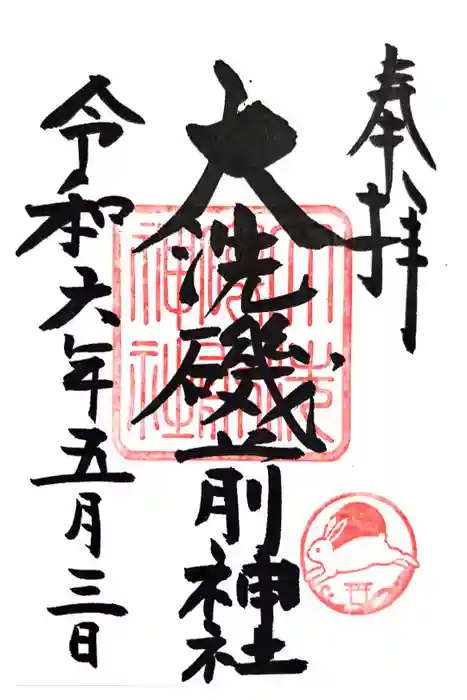 奉拝
大洗磯前神社
令和六年五月三日